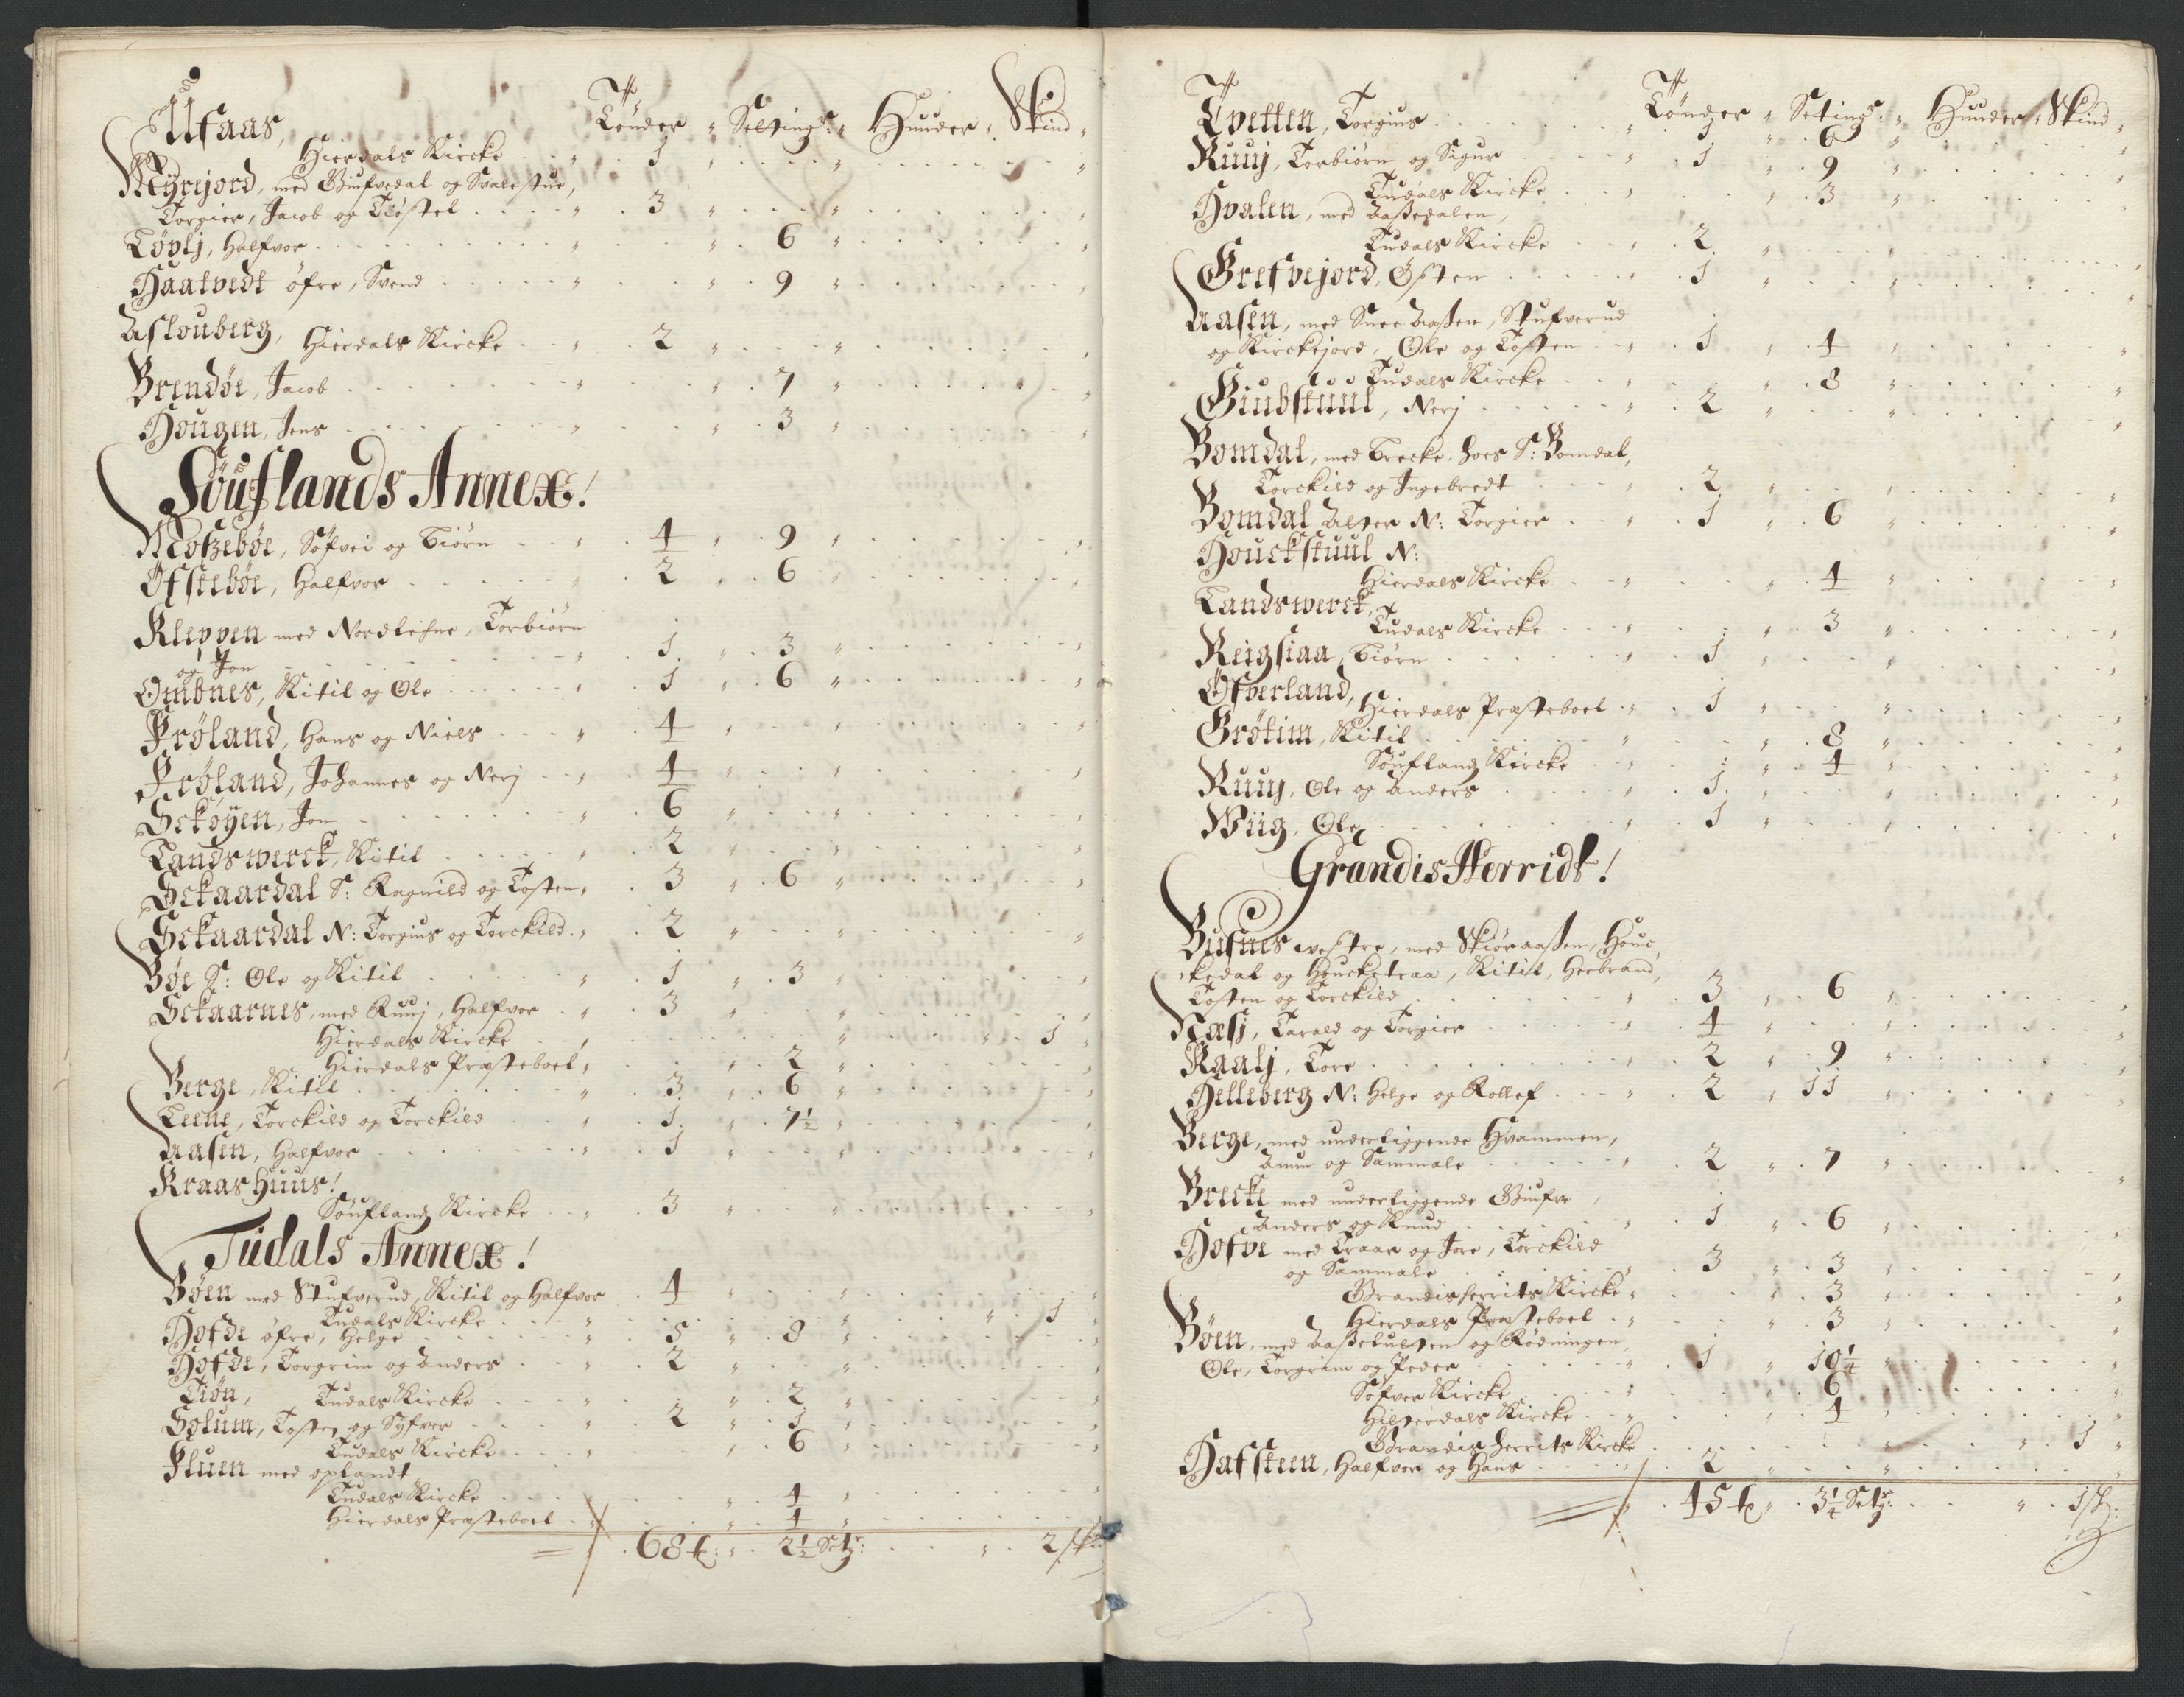 Ufaas, Tönder " Setting: " Hunder " Skind "
Hierdals Kircke 1
Myrejord, med Giufvedal og Svalestue,
Torgier, Jacob og Tostel 3
Löylj, Halfvor 6
Haatvedt öfre, Svend 9
Aslouberg, Hierdals Kircke 2
Brendöe, Jacob 7
Hougen, Jens 3
Söuflands Annex!
Mötzeböe, Söfvei og Biörn 4 9
Öfsteböe, Halfvor 2 6
Kleppen med Nordlesne, Torbiörn
og Jon 1 3
Ombnes, Kitil og Ole 1 6
Fröland, Hans og Niels 4
Fröland, Johannes og Nerj 4
Sckoyen, Jon 6
Landswerck, Kitil 2
Sckaardal S: Ragnild og Tosten 3 6
Sckaardal N: Torgius og Torckild 2
Böe S: Ole og Kitil 1 3
Sckaarnes, med Ruuj, Halfvor 3
Hierdals Kircke 1
Hierdals Præsteboel 2
Berge, Kitil 3 6
Teene, Torckild og Torckild 1 7½
Aasen, Halfvor 1
Kraas Huus!
Söuflands Kircke 3
Tudals Annex!
Böen med Stufverud, Kitil og Halfvor 4
Tudals Kircke 1
Hofde öfre, Helge 5 8
Hofde, Torgrim og Anders 2
Tiön, Tudals Kircke 2
Solum, Tosten og Syfver 2 1
Tudals Kircke 6
Fluen med oplandt
Tudals Kircke 4
Hierdals Præsteboel 4
68 t: 2½ Setr: 2 sk
Tvetten, Torgius Tönder " Seting: " Hunder " Skind "
1 6
Ruuj, Torbiörn og Sigur 1 9
Tudals Kircke 3
Hvalen, med Aassedalen,
Tudals Kircke 2
Grefvejord, Östen 1
Aasen, med Snee Aasen, Stufverud
og Kirckejord, Ole og Tosten 1 4
Tudals Kircke 8
Giubstuul, Nerj 2
Bomdal, med Brecke hoes S: Bomdal,
Torckild og Ingebredt 2
Bomdal Alter N: Torgier 1 6
Houckstuul N:
Hierdals Kircke 4
Landswerck,
Tudals Kircke 3
Reigsiaa, Biörn 1
Öfverland,
Hierdals Præsteboel 1
Grötim, Kitil 8
Söuflands Kircke 4
Ruuj, Ole og Anders 1
Wiig, Ole 1
Grandis Herridt!
Bufnes westre, med Skiöraasen, Houc-
kedal og Houcketraa, Kitil, Herbrand,
Tosten og Torckild 3 6
Næsj, Tarald og Torgier 4
Kaalj, Tore 2 9
Helleberg N: Helge og Rollef 2 11
Berge, med underliggende Hvammen,
Amm og Sammale 2 7
Brecke med underliggende Giufve,
Anders og Knud 1 6
Hofve med Traae og Jore, Torckild
og Sammale 3 3
Grandisherrits Kircke 3
Hierdals Præsteboel 3
Böen, med Aassetulten og Rödningen,
Ole, Torgrim og Peder 1 10¼
Söfver Kircke 6
Hilterdals Kircke 4
Grandis herrits Kircke 1
Hafsteen, Halfvor og Hans 2
45 t: 3¼ Setr: 1 sk: